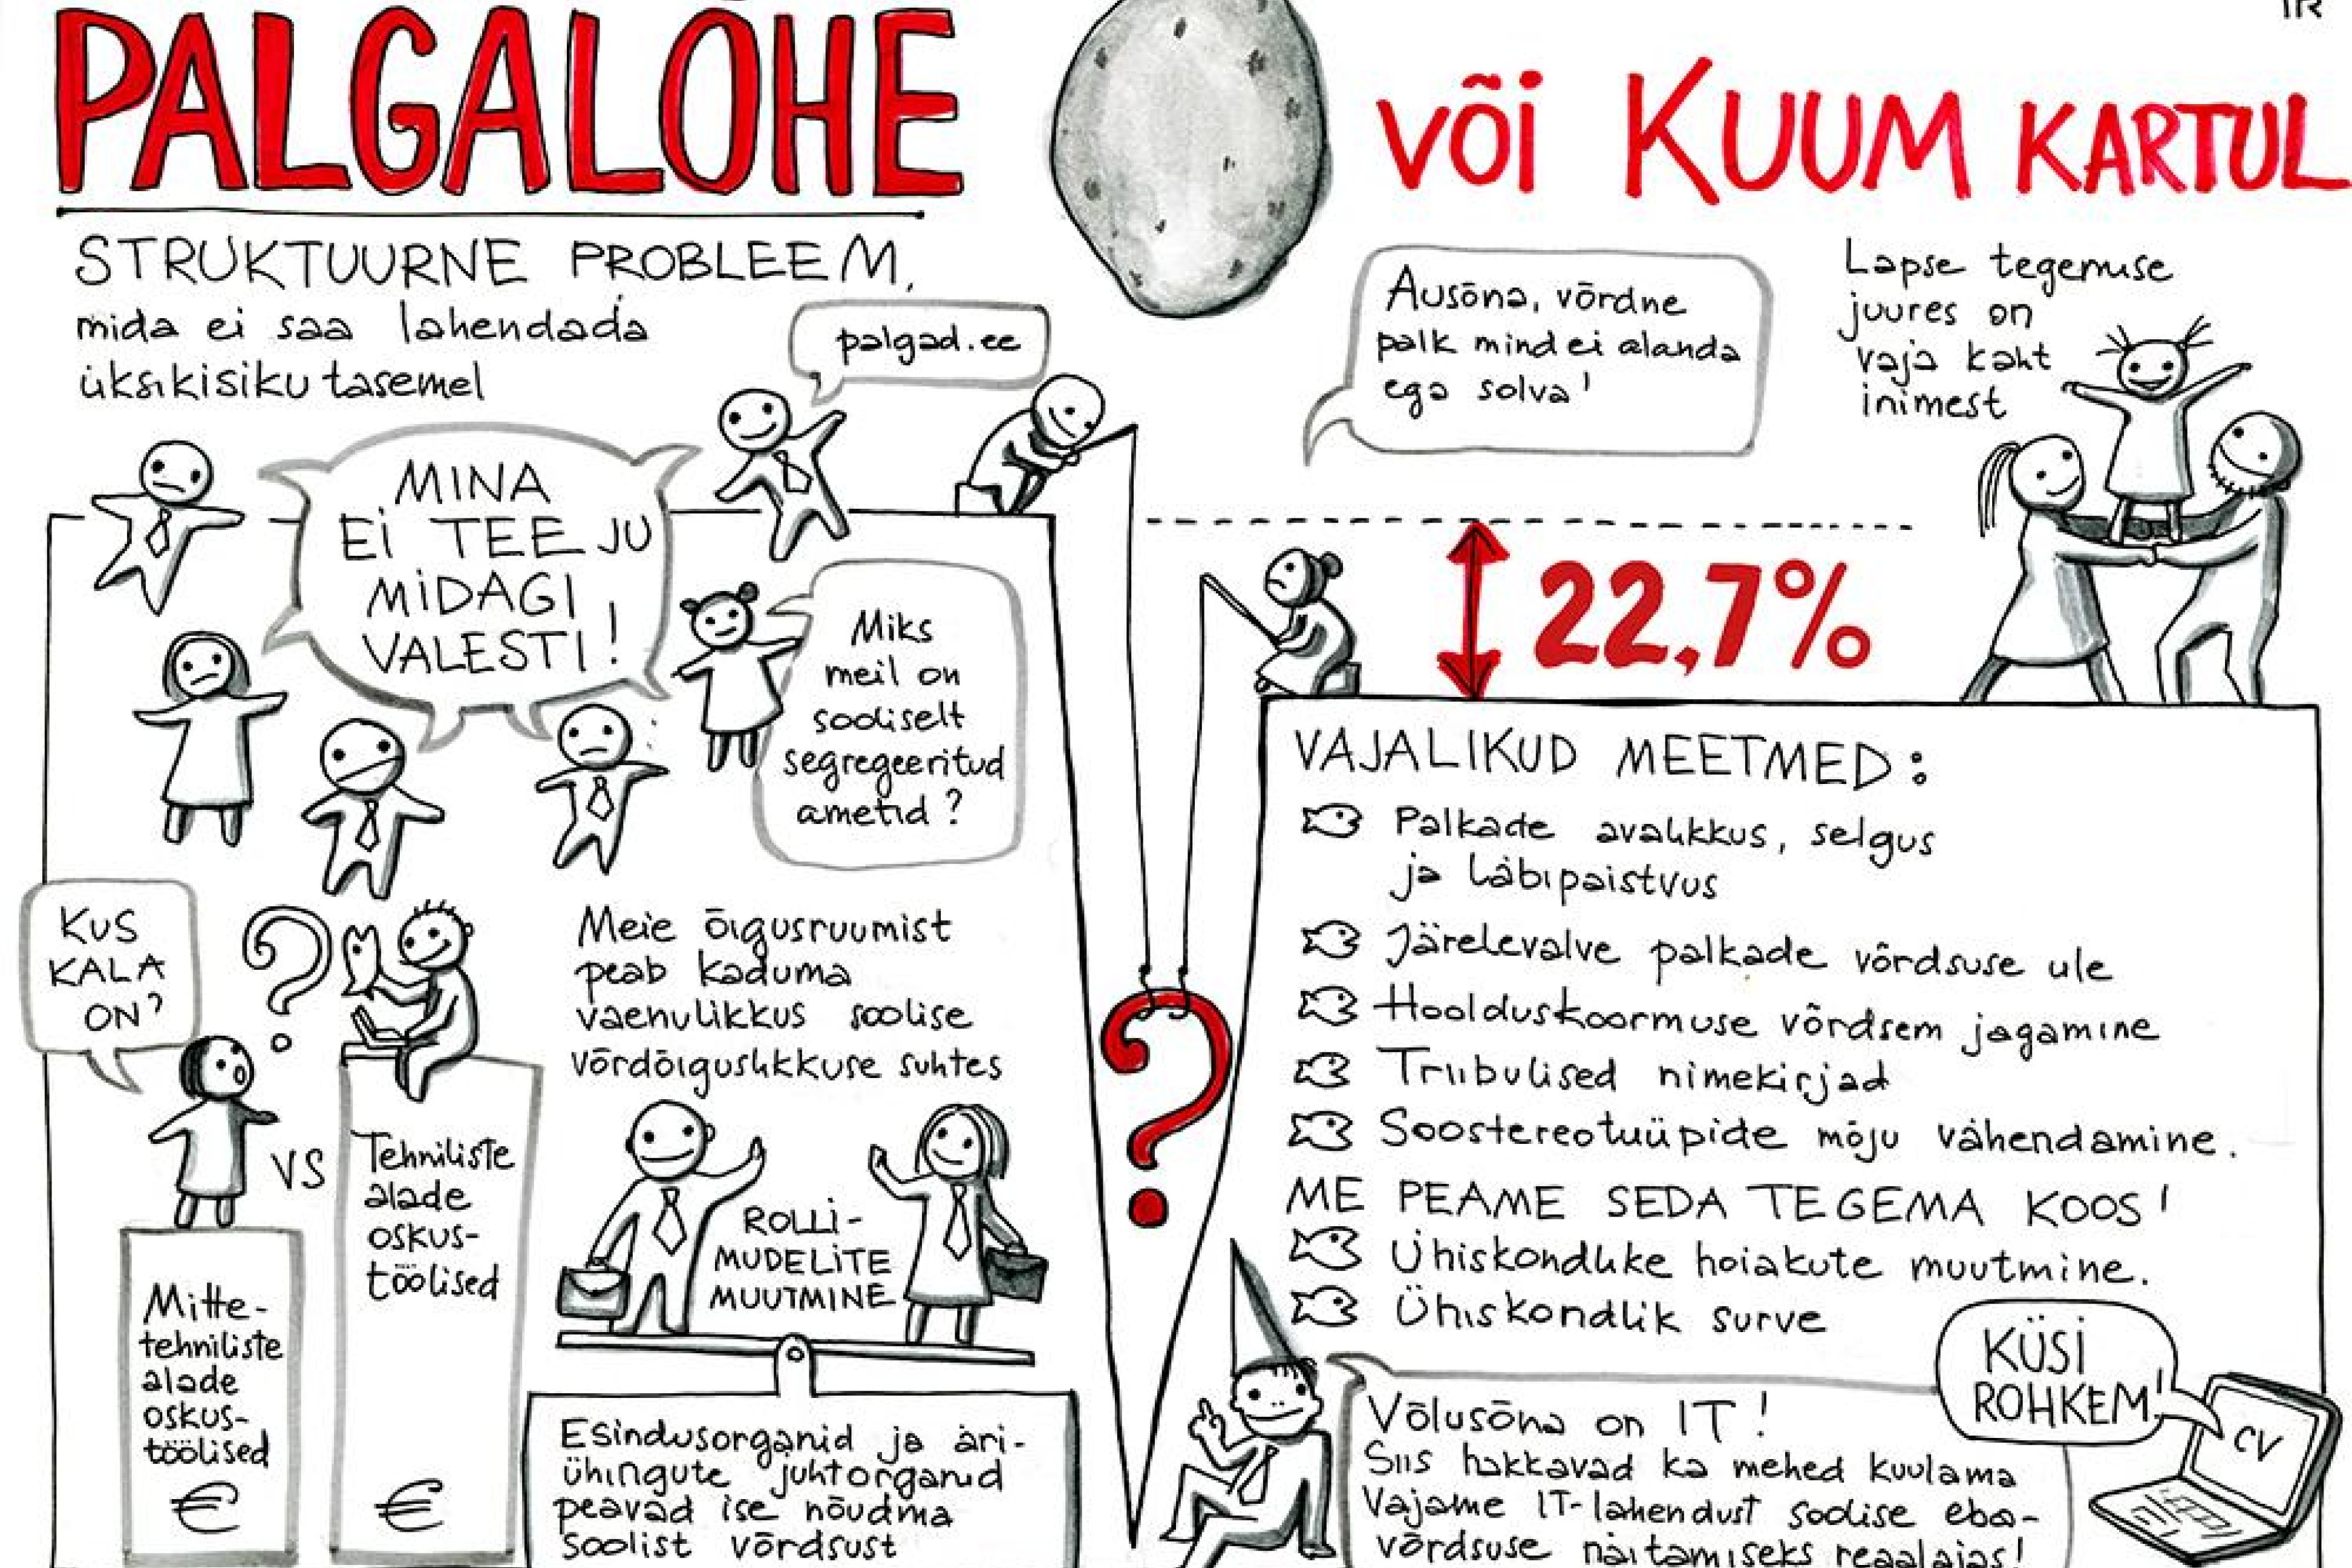 PALGALÕHE
või KUUM KARTUL
STRUKTUURNE PROBLEEM,
mida ei saa lahendada
üksikisiku tasemel
palgad.ee
Ausõna, võrdne
palk mind ei alanda
ega solva!
Lapse tegemuse
juures on
vaja kaht
inimest
MINA
EI TEE JU
MIDAGI
VALESTI!
Miks
meil on
sooliselt
segregeeritud
ametid?
22,7%
KUS
KALA
ON?
?
VS
Mitte-
tehniliste
alade
oskus-
töölised
€
Tehniliste
alade
oskus-
töölised
€
Meie õigusruumist
peab kaduma
vaenulikkus soolise
võrdõiguslikkuse suhtes
ROLLI-
MUDELITE
MUUTMINE
Esindusorganid ja äri-
ühingute juhtorganid
peavad ise nõudma
soolist võrdsust
?
VAJALIKUD MEETMED:
Palkade avalikkus, selgus
ja läbipaistvus
Järelevalve palkade võrdsuse üle
Hoolduskoormuse võrdsem jagamine
Triibulised nimekirjad
Soostereotüüpide mõju vähendamine.
ME PEAME SEDA TEGEMA KOOS!
Ühiskondlike hoiakute muutmine.
Ühiskondlik surve
KÜSI
ROHKEM!
CV
Võlusõna on IT!
Siis hakkavad ka mehed kuulama
Vajame IT-lahendust soolise eba-
võrdsuse näitamiseks reaalajas!